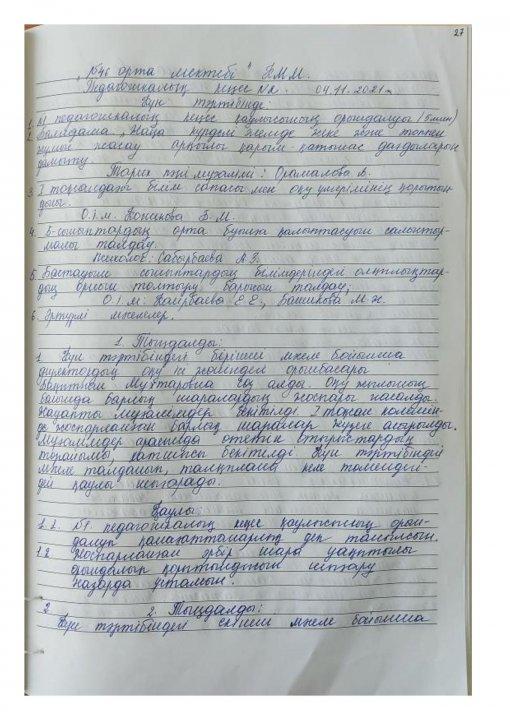 27
"№46 орта мектебі" КММ.
Педагогикалық кеңес №2. 04.11.2021ж
Күн тәртібінде:
1. №1 педагогикалық кеңес қаулысының орындалуы (білім)
2. Баяндама "Жаңа күрделі әлемде жеке және топпен
жұмыс жасау арқылы қарым қатынас дағдыларын
дамыту
Тарих пәні мұғалімі: Орамалова А.
3. I тоқсандағы білім сапасы мен оқу үлгерімінің қорытын-
дысы.
О.і.м. Коникова Б.М.
4. 5-сыныптардың орта буынға қалыптасуын салыстыр-
малы талдау.
Психолог: Сабырбаева А.З.
5. Бастауыш сыныптардың білімдеріндегі олқылықтар-
дың орнын толтыру барысын талдау;
О.і.м: Каирбаева Е.Е., Башикова М.Н.
6. Әртүрлі мәселелер.
1. Тыңдалды:
1. Күн тәртібіндегі бірінші мәселе бойынша
директордың оқу ісі жөніндегі орынбасары
Мухтаровна сөз алды. Оқу жылының
басында барлық шаралардың жоспары жасалды.
Жауапты мұғалімдер бекітілді. I тоқсан көлемін-
де жоспарланған барлық шаралар жүзеге асырылды.
Мұғалімдер арасында өтетін отырыстардың
төрайымы, хатшысы бекітілді. Күн тәртібіндегі
мәселе талданып, талқылана келе төмендегі-
дей қаулы шығарады.
Қаулы:
1.1. №1 педагогикалық кеңес қаулысының орын-
далуы қанағаттанарлық деп танылсын.
1.2 Жоспарланған әрбір шара уақтылы
орындалып қорытындысын шығару
назарда ұсталсын.
2 2. Тыңдалды:
Күн тәртібіндегі екінші мәселе бойынша